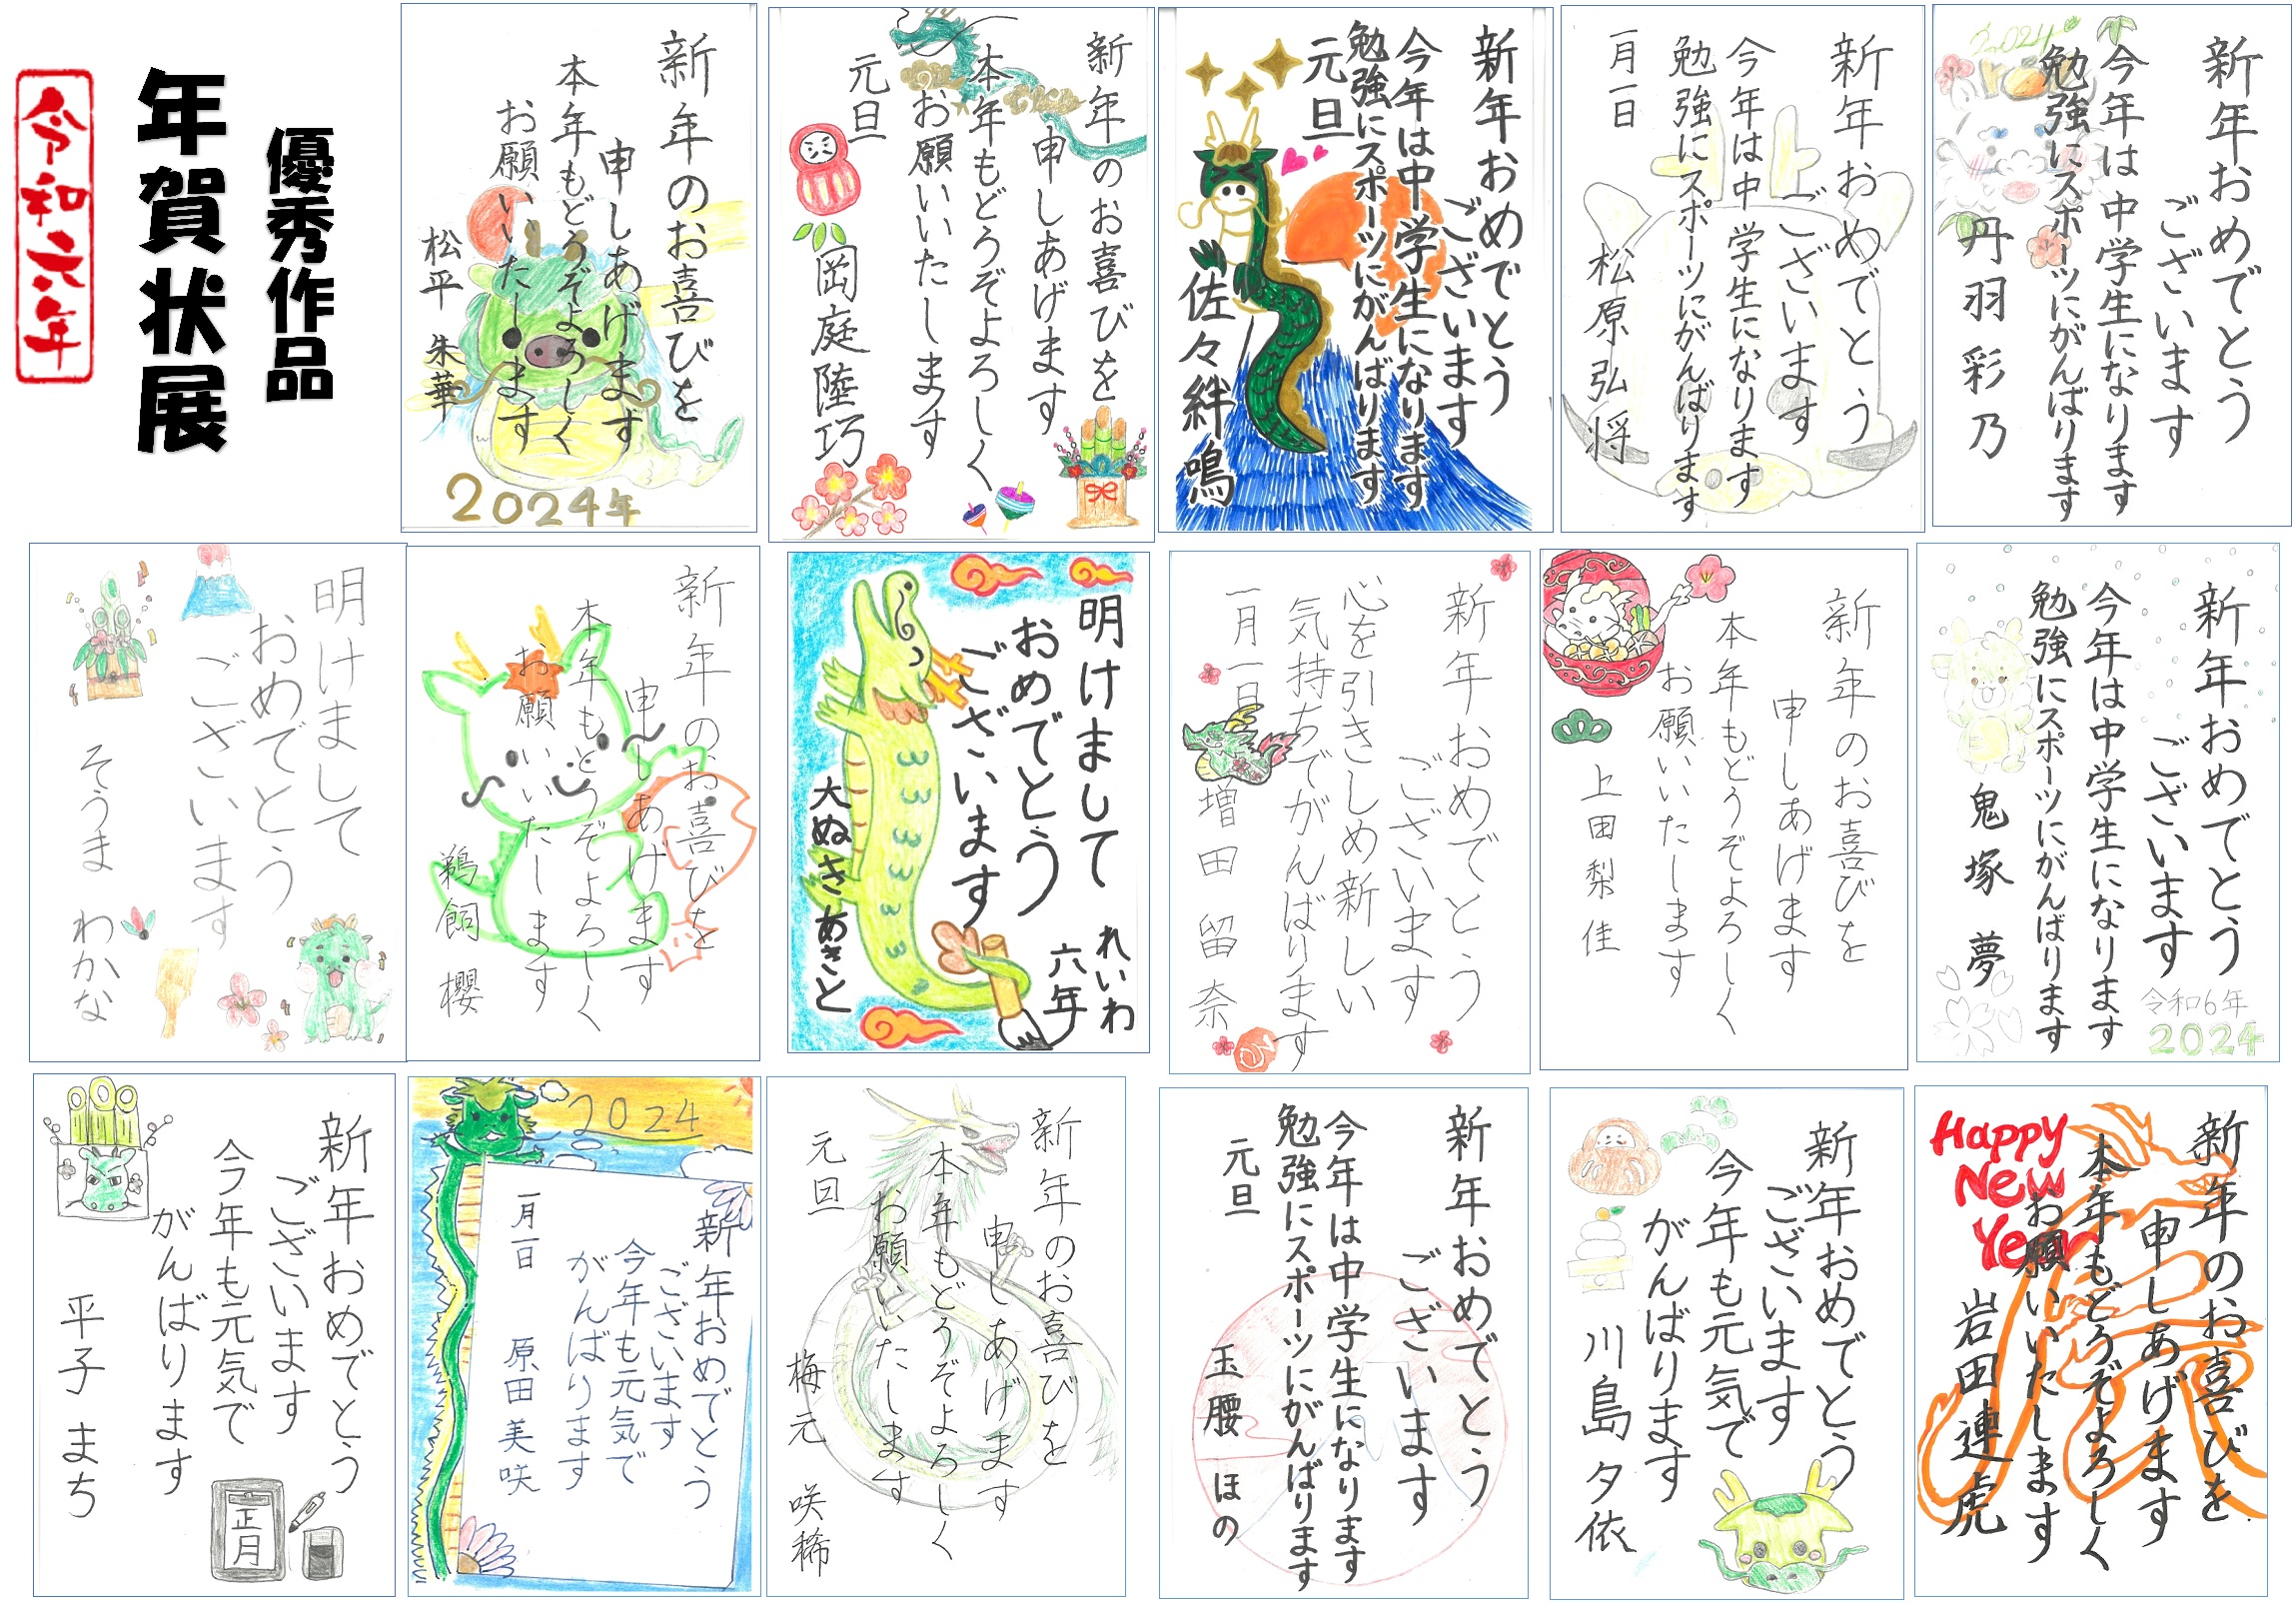 優秀作品
年賀状展
令和六年
新年のお喜びを
申しあげます
本年もどうぞよろしく
お願いいたします
松平 朱華
2024年
新年のお喜びを
申しあげます
本年もどうぞよろしく
お願いいたします
元旦
岡庭陸巧
新年おめでとう
ございます
今年は中学生になります
勉強にスポーツにがんばります
元旦
佐々絆鳴
新年おめでとう
ございます
今年は中学生になります
勉強にスポーツにがんばります
一月一日
松原弘将
2024
新年おめでとう
ございます
今年は中学生になります
勉強にスポーツにがんばります
丹羽彩乃
明けまして
おめでとう
ございます
そうま わかな
新年のお喜びを
申しあげます
本年もどうぞよろしく
お願いいたします
鵜飼 櫻
明けまして
おめでとう
ございます
れいわ
六年
大ぬさあきと
新年おめでとう
ございます
心を引きしめ新しい
気持ちでがんばります
一月一日
増田留奈
新年のお喜びを
申しあげます
本年もどうぞよろしく
お願いいたします
上田梨佳
新年おめでとう
ございます
今年は中学生になります
勉強にスポーツにがんばります
鬼塚 夢
令和6年
2024
新年おめでとう
ございます
今年も元気で
がんばります
平子 まち
正月
2024
新年おめでとう
ございます
今年も元気で
がんばります
一月一日
原田美咲
新年のお喜びを
申しあげます
本年もどうぞよろしく
お願いいたします
元旦
梅元 咲稀
新年おめでとう
ございます
今年は中学生になります
勉強にスポーツにがんばります
元旦
玉腰 ほの
新年おめでとう
ございます
今年も元気で
がんばります
川島夕依
Happy
New
Year
新年のお喜びを
申しあげます
本年もどうぞよろしく
お願いいたします
岩田連虎